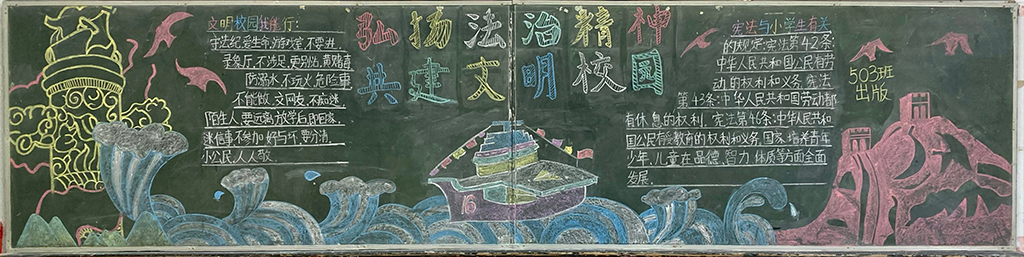 弘扬法治精神
共建文明校园
文明校园我能行:
守法纪爱生命,游戏室,不要进,
录象厅,不涉足,要别佔,黄赌毒
防溺水,不玩火,危险事
不能做,交网友,不痴迷,
陌生人,要远离,放学后,即回家,
迷信事,不参加,好与坏,要分清,
小公民,人人敬
宪法与小学生有关
的规定:宪法第42条
中华人民共和国公民有劳
动的权利和义务,宪法
第43条:中华人民共和国劳动都
有休息的权利,宪法第46条:中华人民共和
国公民有受教育的权利和义务,国家培养青年
少年、儿童在品德、智力、体质等方面全面
发展.
503班
出版
16